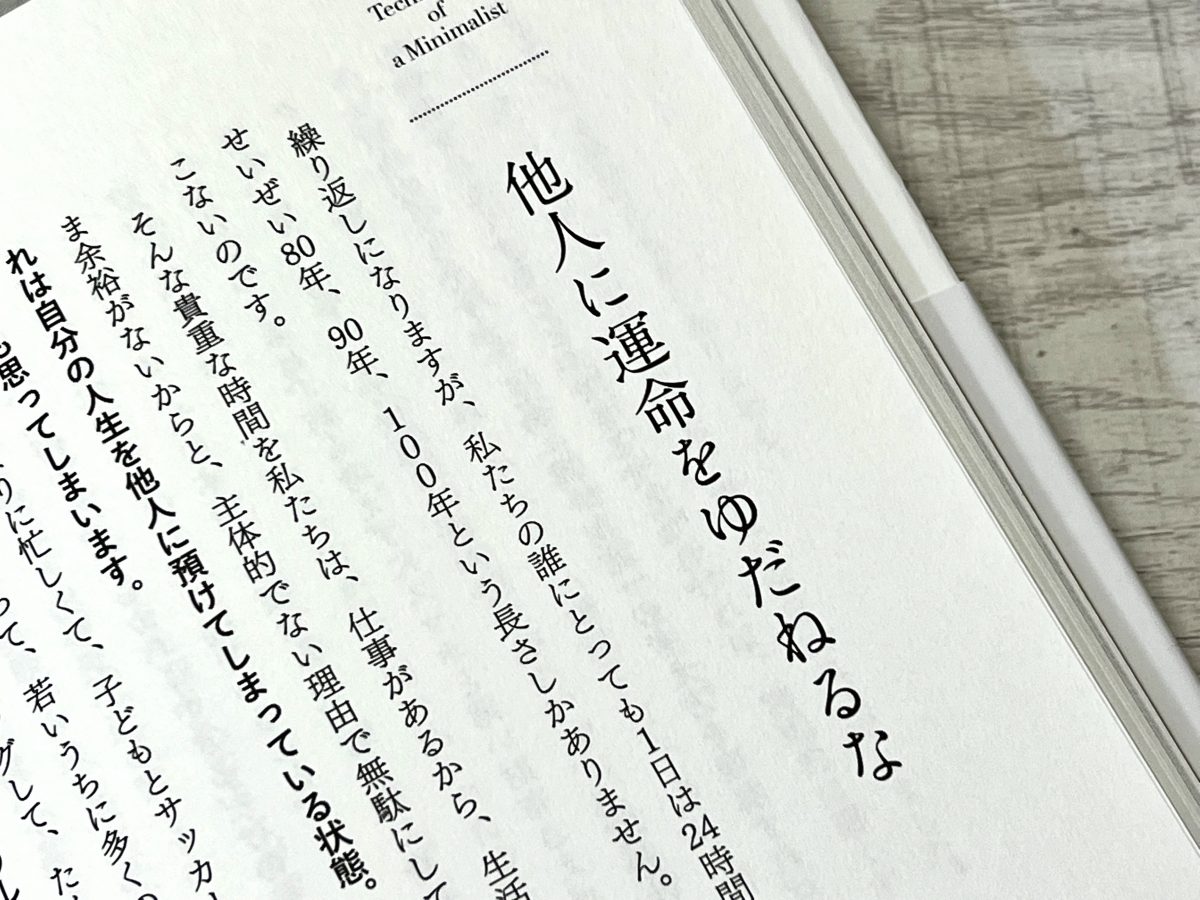 of
a Minimalist
他人に運命をゆだねるな
繰り返しになりますが、私たちの誰にとっても1日は24時間
せいぜい80年、90年、100年という長さしかありません。
こないのです。
そんな貴重な時間を私たちは、仕事があるから、生活
ま余裕がないからと、主体的でない理由で無駄にして
れは自分の人生を他人に預けてしまっている状態。
も思ってしまいます。
りに忙しくて、子どもとサッカー
って、若いうちに多くの
グして、た